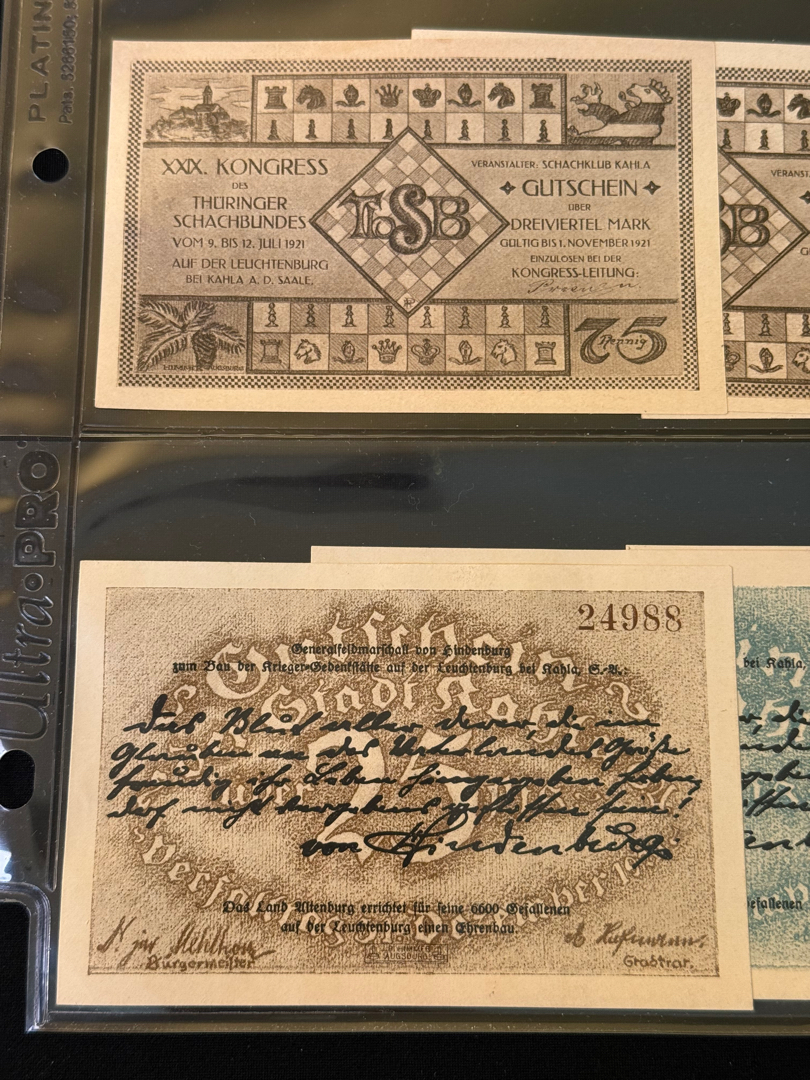 PLATIN
Pats. 5266150; 5
XXIX. KONGRESS
DES
THÜRINGER
SCHACHBUNDES
VOM 9. BIS 12. JULI 1921
AUF DER LEUCHTENBURG
BEI KAHLA A. D. SAALE.
ThSB
VERANSTALTER: SCHACHKLUB KAHLA
GUTSCHEIN
ÜBER
DREIVIERTEL MARK
GÜLTIG BIS 1. NOVEMBER 1921
EINZULÖSEN BEI DER
KONGRESS-LEITUNG:
75
Pfennig
VERANST
SB
Ultra PRO
24988
Gutschein
Stadt
Generalfeldmarschall von Hindenburg
zum Bau der Krieger-Gedenkstätte auf der Leuchtenburg bei Kahla, S.-A.:
Das Blut aller derer, die im
Glauben an des Vaterlandes Größe
freudig ihr Leben hingegeben haben,
darf nicht vergebens geflossen sein!
von Hindenburg.
über 25
Das Land Altenburg errichtet für seine 6600 Gefallenen
auf der Leuchtenburg einen Ehrenbau.
Bürgermeister
Stadtrat.
AUGSBURG
bei Kahla,
efallenen